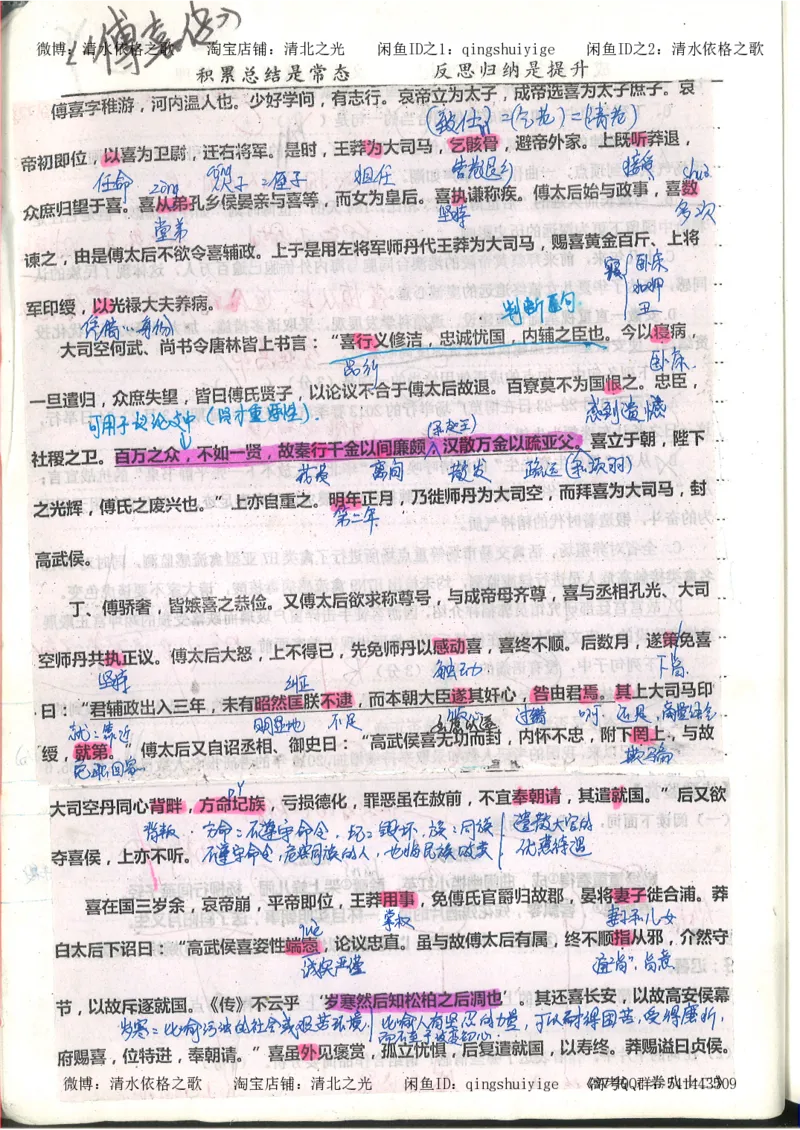 《傅喜传》
微博：清水依格之歌 淘宝店铺：清北之光 闲鱼ID之1：qingshuiyige 闲鱼ID之2：清水依格之歌
积累总结是常态 反思归纳是提升
傅喜字稚游，河内温人也。少好学问，有志行。哀帝立为太子，成帝选喜为太子庶子。哀
(致仕)=(乞老)=(请老)
帝初即位，以喜为卫尉，迁右将军。是时，王莽为大司马，乞骸骨，避帝外家。上既听莽退，
任命 zòng 次子=庶子 担任 告老退乡 接受 shuò
众庶归望于喜。喜从弟孔乡侯晏亲与喜等，而女为皇后。喜执谦称疾。傅太后始与政事，喜数
堂弟 坚持 多次
谏之，由是傅太后不欲令喜辅政。上于是用左将军师丹代王莽为大司马，赐喜黄金百斤、上将
寝 卧床
军印绶，以光禄大夫养病。
凭借…身份 判断句
大司空何武、尚书令唐林皆上书言：“喜行义修洁，忠诚忧国，内辅之臣也。今以寝病，
品行 卧床
一旦遣归，众庶失望，皆曰傅氏贤子，以论议不合于傅太后故退。百寮莫不为国恨之。忠臣，
可用于议论文中 感到遗憾
社稷之卫。百万之众，不如一贤，故秦行千金以间廉颇，汉散万金以疏亚父。喜立于朝，陛下
花费 离间 散发 疏远
之光辉，傅氏之废兴也。”上亦自重之。明年正月，乃徙师丹为大司空，而拜喜为大司马，封
第二年
高武侯。
丁、傅骄奢，皆嫉喜之恭俭。又傅太后欲求称尊号，与成帝母齐尊，喜与丞相孔光、大司
空师丹共执正议。傅太后大怒，上不得已，先免师丹以感动喜，喜终不顺。后数月，遂策免喜
坚持 纠正 触动 下旨
曰：“君辅政出入三年，未有昭然匡朕不逮，而本朝大臣遂其奸心，咎由君焉。其上大司马印
就：靠近 明显地 不足 过错
绶，就第。”傅太后又自诏丞相、御史曰：“高武侯喜无功而封，内怀不忠，附下罔上，与故
欺骗
大司空丹同心背畔，方命圮族，亏损德化，罪恶虽在赦前，不宜奉朝请，其遣就国。”后又欲
背叛 方命：不遵守命令，圮：毁坏，族：同族
夺喜侯，上亦不听。
不遵守命令，危害同族的人 优惠待遇
喜在国三岁余，哀帝崩，平帝即位，王莽用事，免傅氏官爵归故郡，晏将妻子徙合浦。莽
掌权 妻子和儿女
白太后下诏曰：“高武侯喜姿性端悫，论议忠直。虽与故傅太后有属，终不顺指从邪，介然守
què
诚实严谨
节，以故斥逐就国。《传》不云乎‘岁寒然后知松柏之后凋也’。其还喜长安，以故高安侯幕
府赐喜，位特进，奉朝请。”喜虽外见褒赏，孤立忧惧，后复遣就国，以寿终。莽赐谥曰贞侯。
微博：清水依格之歌 淘宝店铺：清北之光 闲鱼ID：qingshuiyige